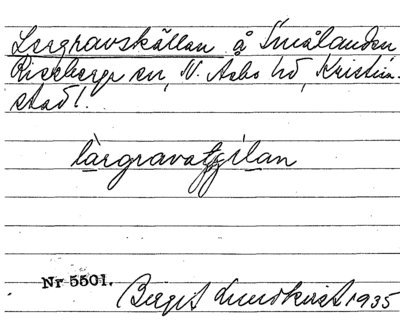 Lergravskällan å Smålanden
Riseberga sn, N. Åsbo hd, Kristian-
stad l.
làrgrava
Nr 5501.
Birgit Lundkvist 1935